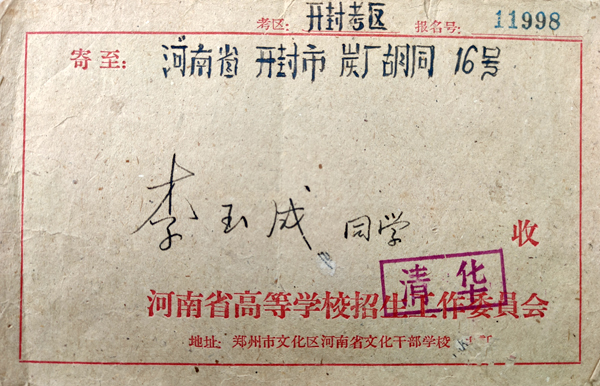 考区: 开封考区 报名号: 11998
寄至: 河南省 开封市 炭厂胡同 16号
李玉成 同学 收
清华
河南省高等学校招生工作委員会
地址: 郑州市文化区河南省文化干部学校